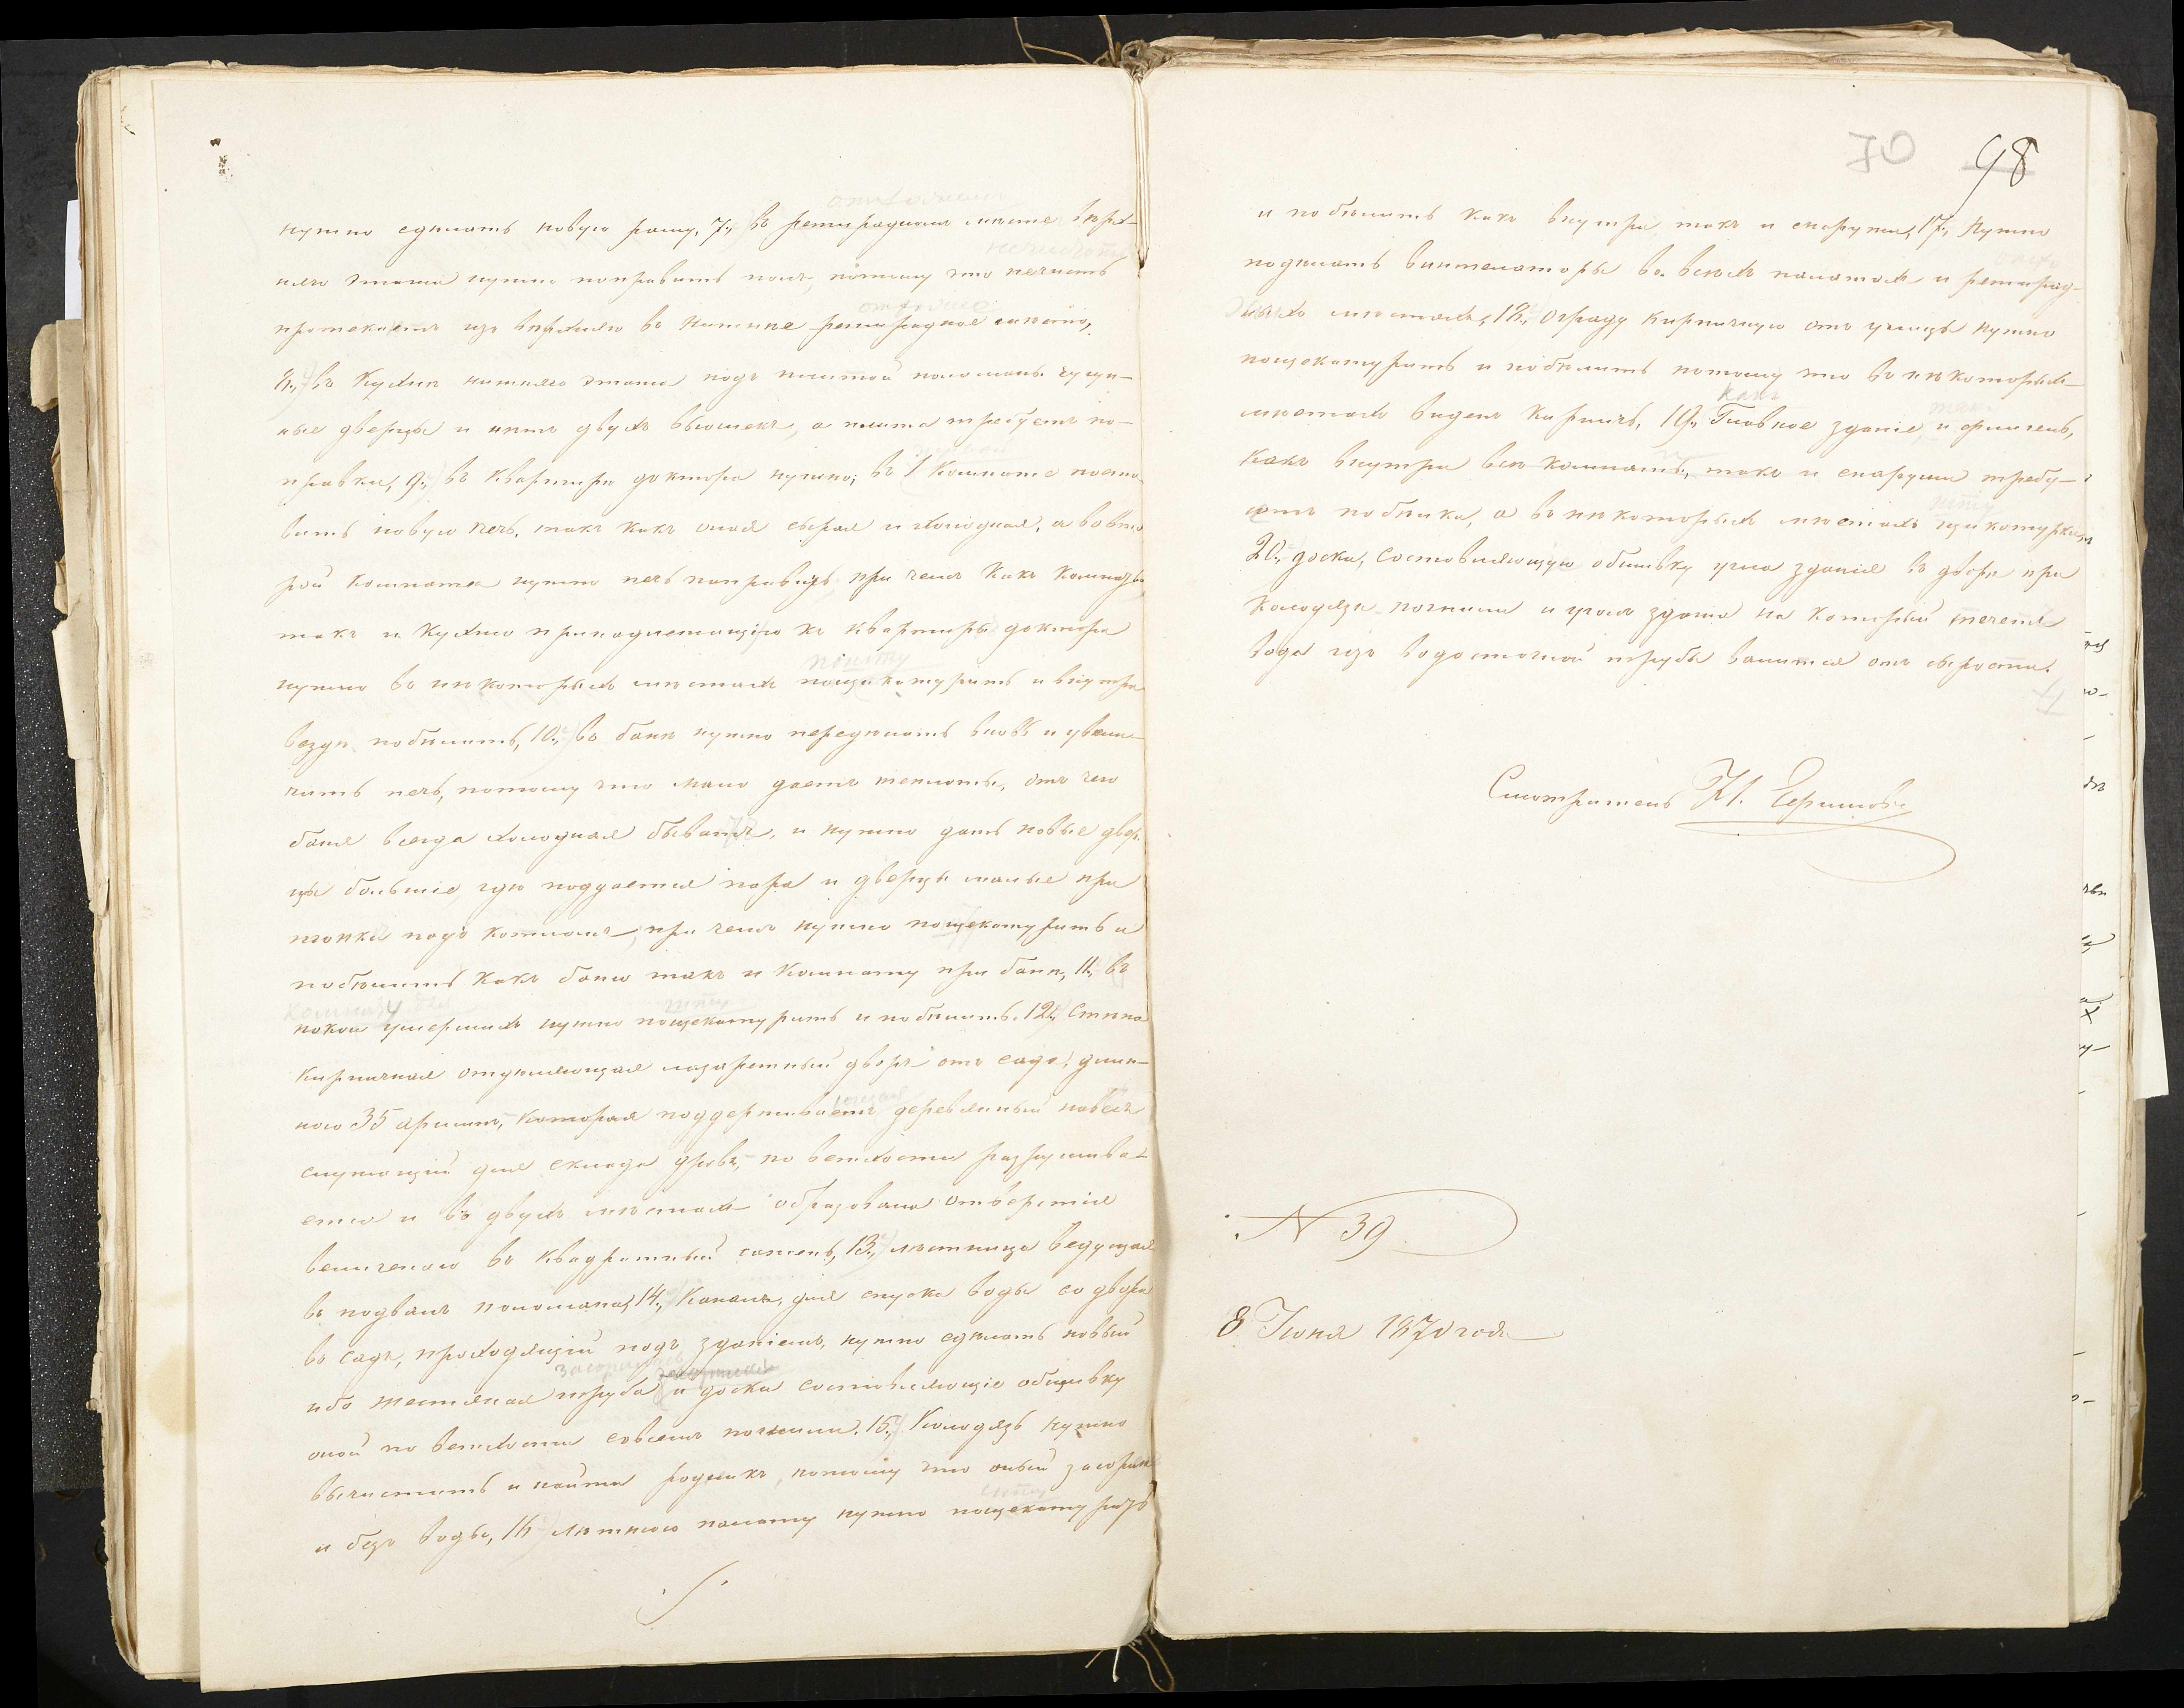 нужно сдѣлать новую раму, 7., въ ретирадномъ мѣстѣ верх-
няго этажа нужно поправить полъ, потому что нечисть
протекаетъ изъ верхняго въ нижнее ретирадное мѣсто,
8., въ Кухнѣ нижняго этажа подъ плитой поломаны чугун-
ные дверцы и нѣтъ двухъ вьюшекъ, а плита требуетъ по-
правки, 9., въ Квартирѣ доктора нужно; въ 1 Комнатѣ поста-
вить новую печь, такъ какъ оная сырая и холодная, а во вто
рой Комнатѣ нужно печь поправить при чемъ какъ Комнаты
такъ и Кухню принадлежащую къ квартирѣ доктора
нужно въ нѣкоторыхъ мѣстахъ пощекатурить и внутри
вездѣ побѣлить, 10., въ банѣ нужно передѣлать вновь и увели-
чить печь, потому что мало даетъ теплоты, отъ чего
баня всегда холодная бываетъ, и нужно дать новые двер-
цы большіе, гдѣ поддается пара и дверцы малые при
топки подъ котломъ, при чемъ нужно пощекатурить и
побѣлить какъ баню такъ и Комнату при банѣ, 11., въ
комнату
покои умершихъ нужно пощекатурить и побѣлить. 12., Стѣна
Кирпичная отдѣляющая лазаретный дворъ отъ сада, длин-
ною 35 аршинъ, которая поддерживаетъ деревянный навесъ
служащій для склада дровъ, по ветхости разрушива-
ется и въ двухъ мѣстахъ образована отверстія
величеною въ квадратный сажень, 13., лѣстница ведущая
въ подвалъ поломана, 14., Каналъ, для спуска воды со двора
въ садъ, проходящій подъ зданіемъ, нужно сдѣлать новый
ибо жестяная труба и доски составляющіе обшивку
оной по ветхости совсемъ погнили. 15., Колодязь нужно
вычистить и найти родникъ, потому что оный засорился
и безъ воды, 16 лѣтнюю палату нужно пощекатурить
70 98
и побѣлить какъ внутри такъ и снаружи, 17., Нужно
подѣлать винтелаторы во всѣхъ палатахъ и ретирад-
ныхъ мѣстахъ, 18., Ограду кирпичную отъ улицы нужно
пощекатурить и побѣлить потому что въ нѣкоторыхъ
какъ
мѣстахъ виденъ Кирпичъ, 19., Главное зданіе, и флигель,
какъ внутри всѣ комнаты, такъ и снаружи требу-
етъ побѣлки, а въ нѣкоторыхъ мѣстахъ щикатурки,
20., доски, составляющую обшивку угла зданія въ дворѣ при
колодязѣ погнили и уголъ зданія на который течетъ
вода изъ водосточной трубы валится отъ сырости.
Смотритель
N 39.
8 Іюня 1870 года